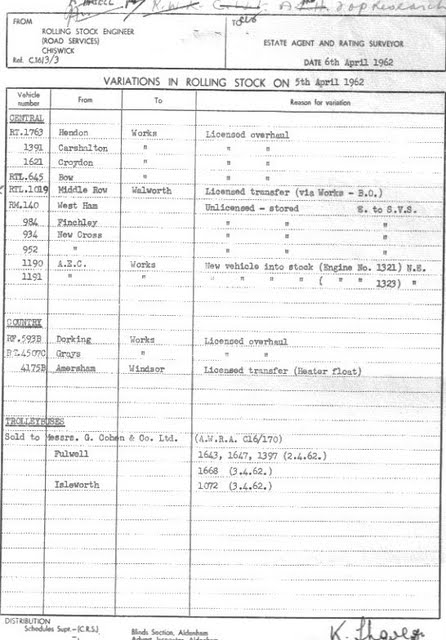 FROM
ROLLING STOCK ENGINEER
(ROAD SERVICES)
CHISWICK
Ref. C.1613/3
TO
ESTATE AGENT AND RATING SURVEYOR
DATE 6th April 1962
VARIATIONS IN ROLLING STOCK ON 5th April 1962
Vehicle number From To Reason for variation
CENTRAL
RT.1763 Hendon Works Licensed overhaul
1391 Carshalton " " "
1621 Croydon " " "
RTL.645 Bow " " "
RTL.1019 Middle Row Walworth Licensed transfer (via Works - B.O.)
RM.140 West Ham Unlicensed - stored E. to S.V.S.
984 Finchley " " "
934 New Cross " " "
952 " " " "
1190 A.E.C. Works New vehicle into stock (Engine No. 1321) N.E.
1191 " " " " " " ( " " 1323) "
COUNTRY
RF.593B Dorking Works Licensed overhaul
RT.4507C Grays " " "
4175B Amersham Windsor Licensed transfer (Heater float)
TROLLEYBUSES
Sold to Messrs. G. Cohen & Co. Ltd. (A.W.R.A. C16/170)
Fulwell 1643, 1647, 1397 (2.4.62.)
1668 (3.4.62.)
Isleworth 1072 (3.4.62.)
DISTRIBUTION
Schedules Supt.-(C.R.S.)
Blinds Section, Aldenham